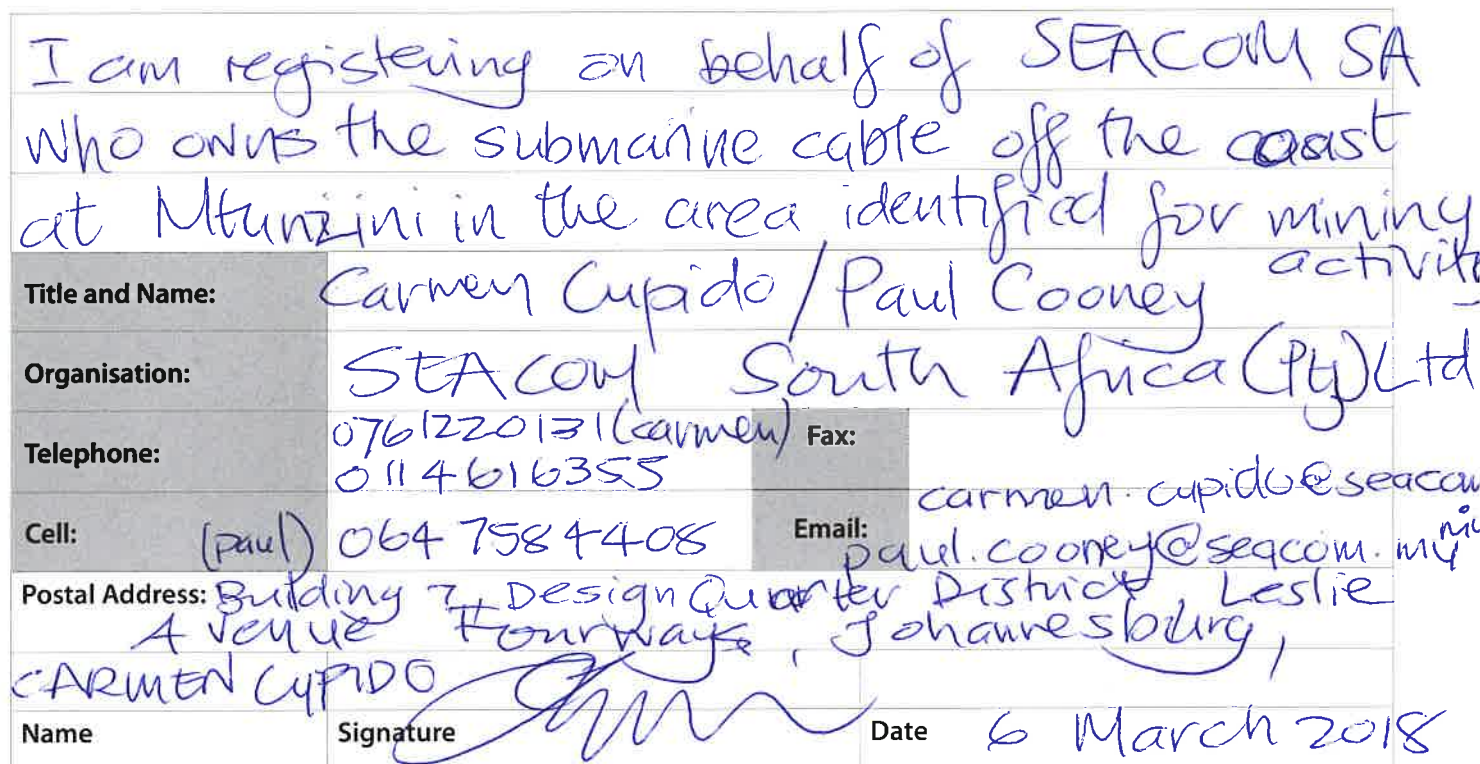 I am registering on behalf of SEACOM SA
who owns the submarine cable off the coast
at Mtunzini in the area identified for mining
activity
Title and Name: Carmen Cupido / Paul Cooney
Organisation: SEACOM South Africa (Pty) Ltd
Telephone: 0761220131 (carmen) Fax:
0114616355
carmen.cupido@seacom.mu
Cell: (paul) 064 7584408 Email: paul.cooney@seacom.mu
Postal Address: Building 7, Design Quarter District, Leslie
Avenue Fourways, Johannesburg,
CARMEN CUPIDO
Name Signature Date 6 March 2018